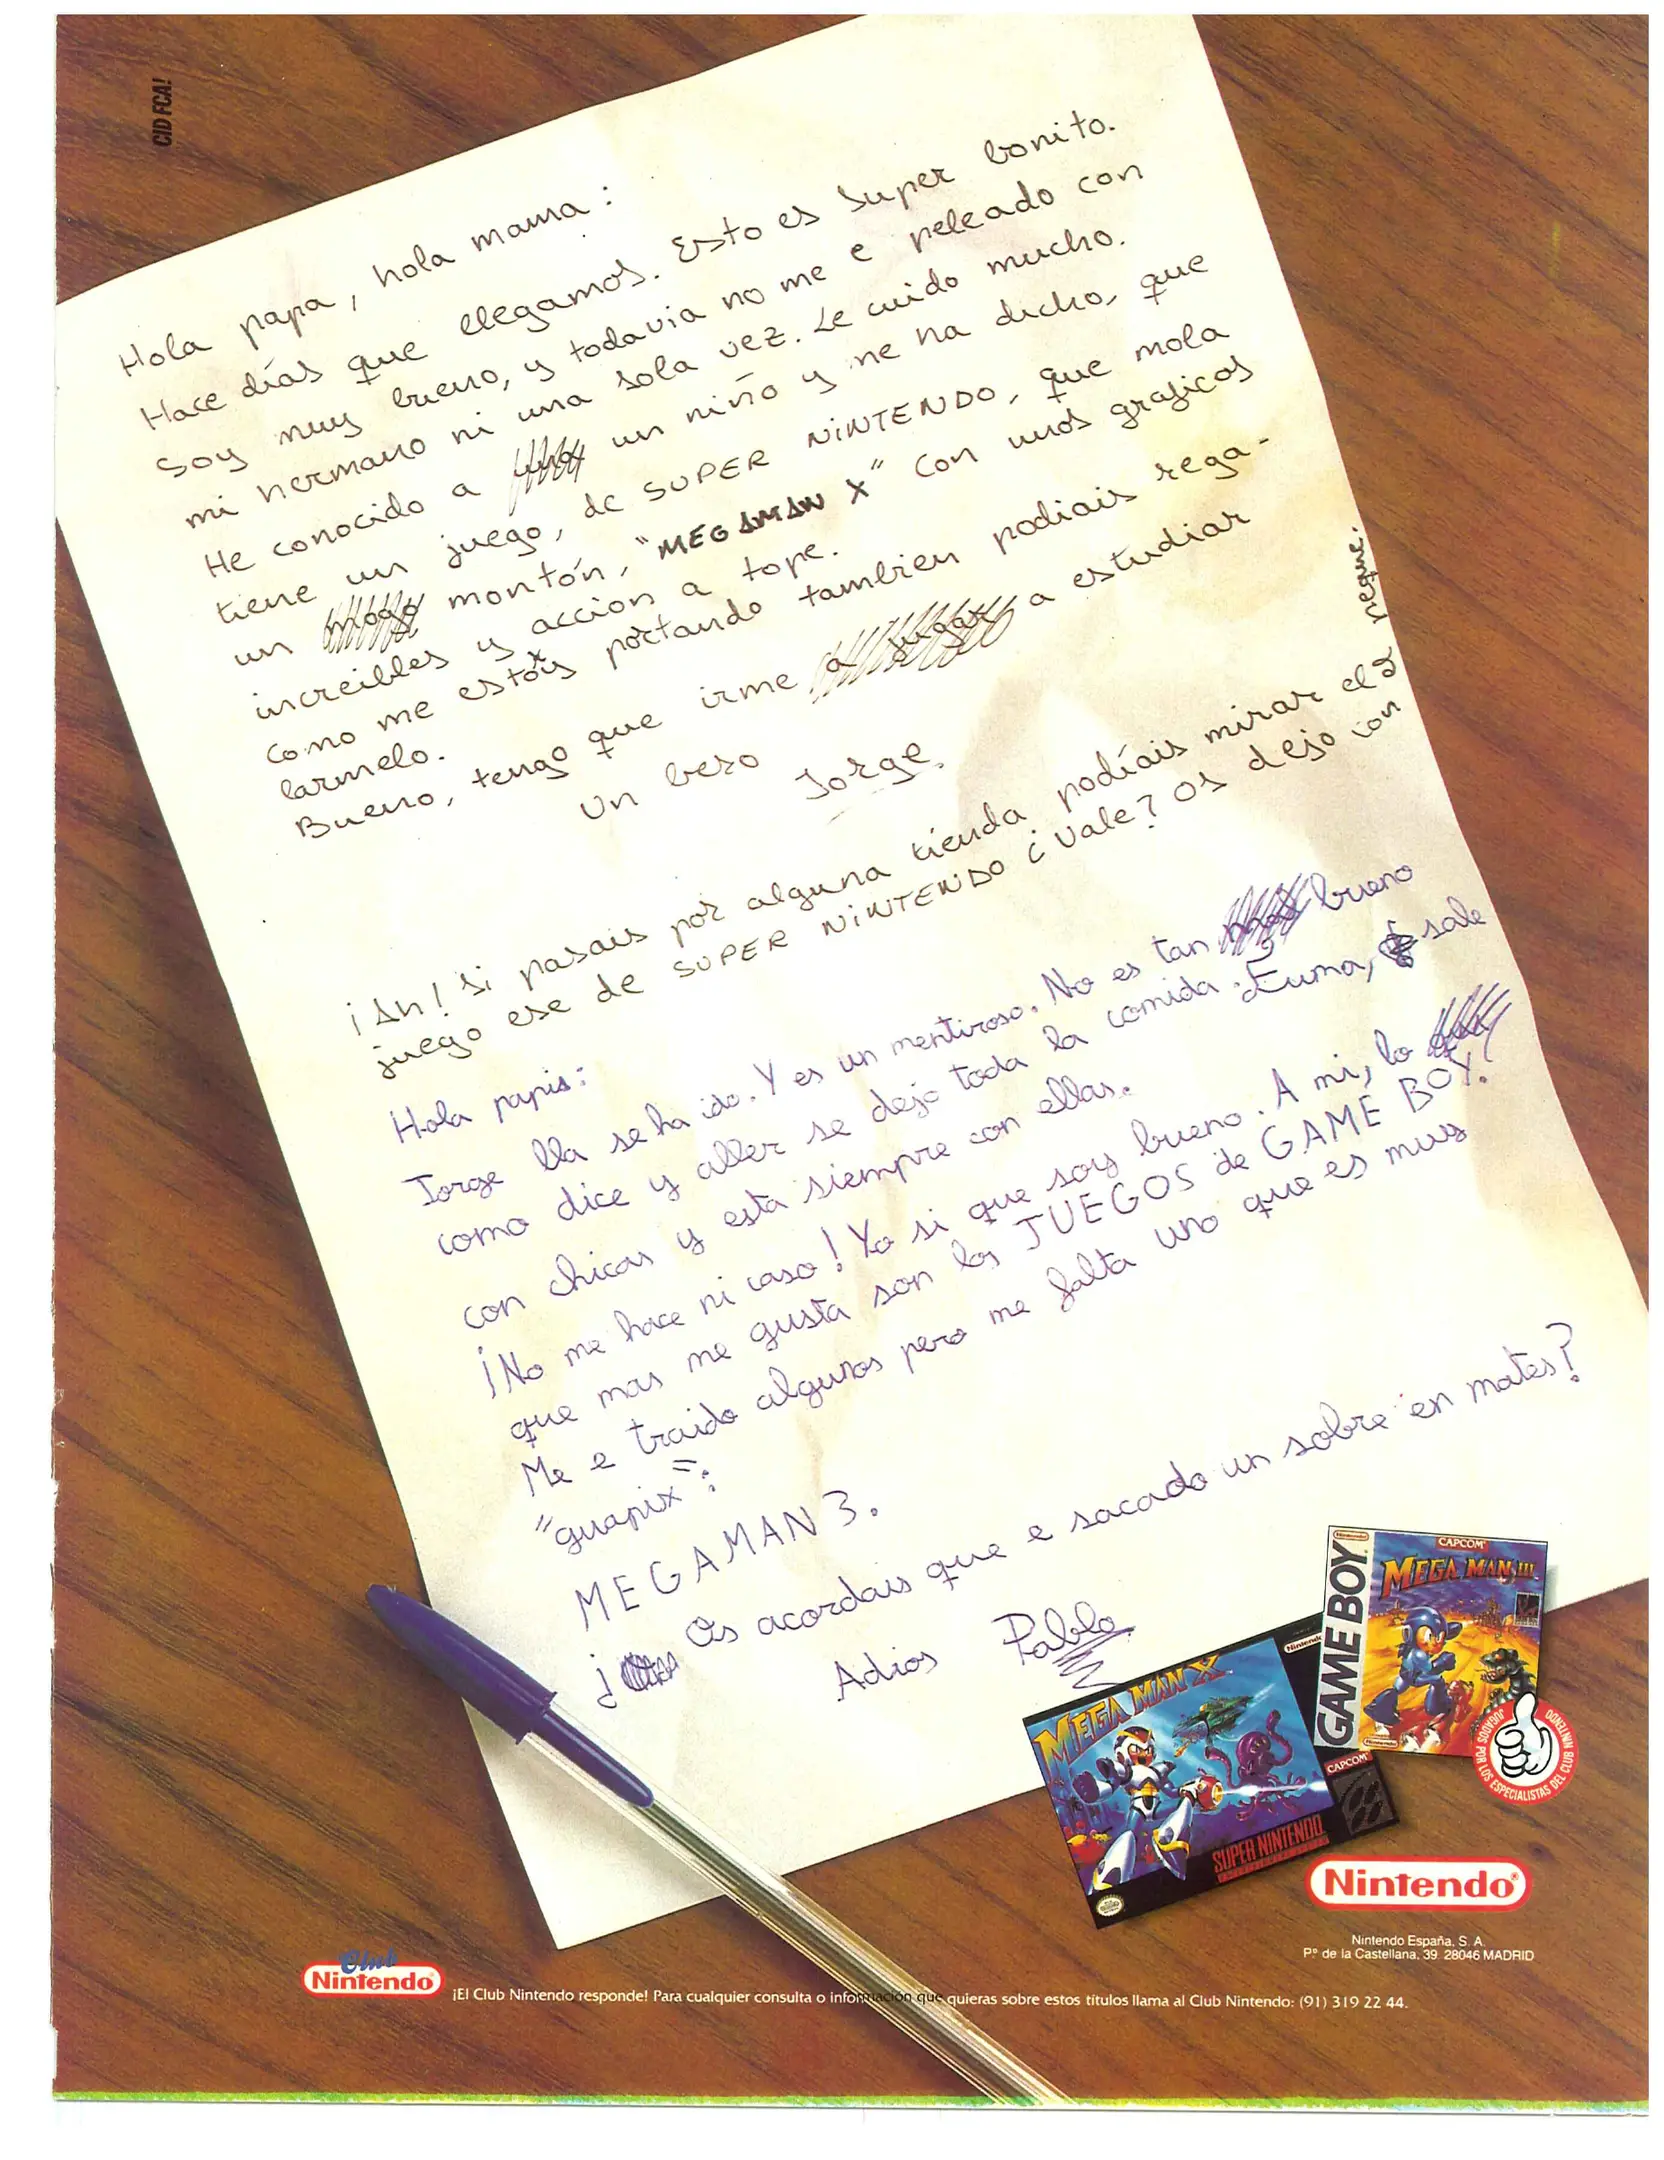 CID FCA!
Hola papa, hola mama:
Hace días que llegamos. Esto es super bonito.
Soy muy bueno, y todavia no me e peleado con
mi hermano ni una sola vez. Le cuido mucho.
He conocido a un niño y me ha dicho, que
tiene un juego, de SUPER NINTENDO, que mola
un mogo montón, "MEGAMAN X" con unos graficos
increibles y accion a tope.
como me estoís portando tambien podiais rega-
larmelo.
Bueno, tengo que irme a jugar a estudiar
Un beso
Jorge.
¡Ah! si pasais por alguna tienda podíais mirar el
juego ese de SUPER NINTENDO ¿vale? Os dejo con
peque.
Hola papis:
Jorge lla se ha ido. Y es un mentiroso. No es tan bueno
como dice y aller se dejo toda la comida. Fuma, sale
con chicas y esta siempre con ellas.
¡No me hace ni caso! Yo si que soy bueno. A mi, lo
que mas me gusta son los JUEGOS de GAME BOY.
Me e traido algunos pero me falta uno que es muy
"guapix":
MEGAMAN 3.
¿ Os acordais que e sacado un sobre en mates?
Adios Pablo
Nintendo
GAME BOY
CAPCOM
MEGA MAN III
Nintendo
MEGA MAN X
CAPCOM
SUPER NINTENDO
JUGADOS POR LOS ESPECIALISTAS DEL CLUB NINTENDO
Nintendo®
Nintendo España, S. A.
Pº de la Castellana, 39. 28046 MADRID
Club
Nintendo
¡El Club Nintendo responde! Para cualquier consulta o información que quieras sobre estos títulos llama al Club Nintendo: (91) 319 22 44.